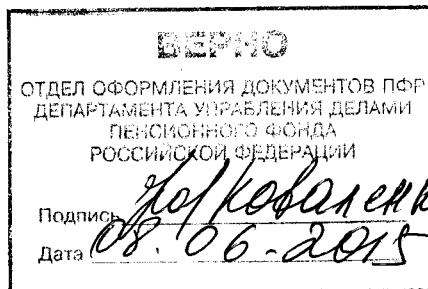 ВЕРНО
ОТДЕЛ ОФОРМЛЕНИЯ ДОКУМЕНТОВ ПФР
ДЕПАРТАМЕНТА УПРАВЛЕНИЯ ДЕЛАМИ
ПЕНСИОННОГО ФОНДА
РОССИЙСКОЙ ФЕДЕРАЦИИ
Подпись Коваленк
Дата 08.06-2015